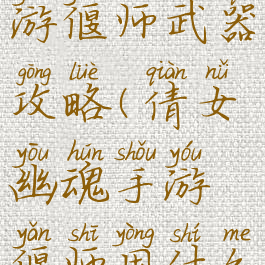 游偃师武器
gōng lüè qiàn nǚ
攻略(倩女
yōu hún shǒu yóu
幽魂手游
yǎn shī yòng shí me
偃师用什么